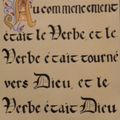 Au commencement
était le Verbe et le
Verbe était tourné
vers Dieu, et le
Verbe était Dieu